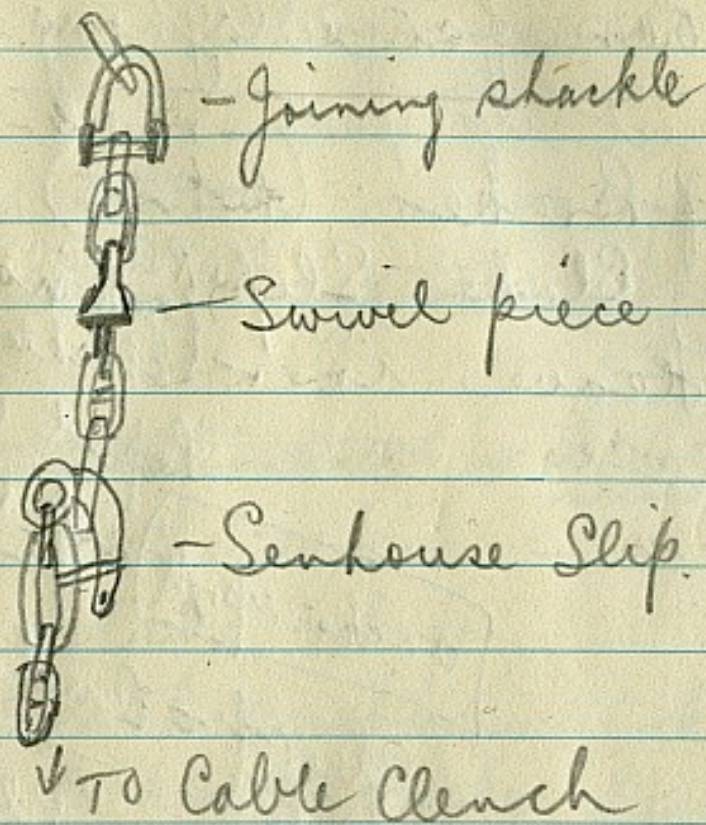 - Joining shackle
- Swivel piece
- Senhouse Slip.
↓ TO Cable Clench